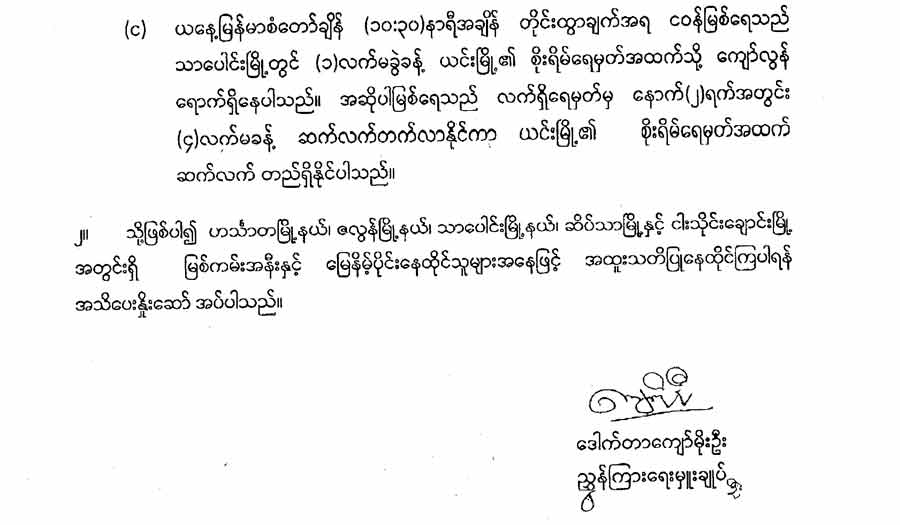 (င) ယနေ့မြန်မာစံတော်ချိန် (၁၀:၃၀)နာရီအချိန် တိုင်းထွာချက်အရ ငဝန်မြစ်ရေသည်
သာပေါင်းမြို့တွင် (၁)လက်မခွဲခန့် ယင်းမြို့၏ စိုးရိမ်ရေမှတ်အထက်သို့ ကျော်လွန်
ရောက်ရှိနေပါသည်။ အဆိုပါမြစ်ရေသည် လက်ရှိရေမှတ်မှ နောက်(၂)ရက်အတွင်း
(၄)လက်မခန့် ဆက်လက်တက်လာနိုင်ကာ ယင်းမြို့၏ စိုးရိမ်ရေမှတ်အထက်
ဆက်လက် တည်ရှိနိုင်ပါသည်။
၂။ သို့ဖြစ်ပါ၍ ဟင်္သာတမြို့နယ်၊ ဇလွန်မြို့နယ်၊ သာပေါင်းမြို့နယ်၊ ဆိပ်သာမြို့နှင့် ငါးသိုင်းချောင်းမြို့
အတွင်းရှိ မြစ်ကမ်းအနီးနှင့် မြေနိမ့်ပိုင်းနေထိုင်သူများအနေဖြင့် အထူးသတိပြုနေထိုင်ကြပါရန်
အသိပေးနှိုးဆော် အပ်ပါသည်။
ဒေါက်တာကျော်မိုးဦး
ညွှန်ကြားရေးမှူးချုပ်